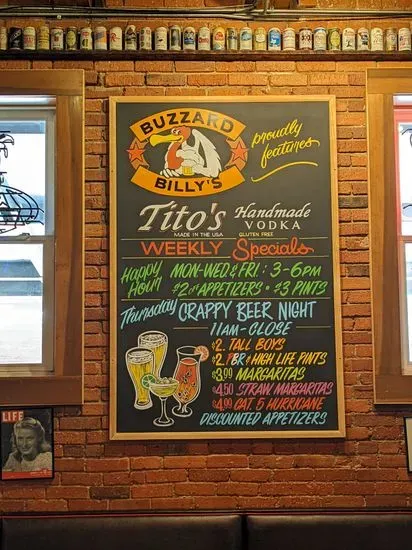 BUZZARD
BILLY'S
proudly
features
Tito's Handmade
VODKA
MADE IN THE USA GLUTEN FREE
WEEKLY Specials
Happy Hour MON-WED & FRI : 3-6PM
$2 OFF APPETIZERS • $3 PINTS
Thursday CRAPPY BEER NIGHT
11AM-CLOSE
$2. TALL BOYS
$2. PBR & HIGH LIFE PINTS
$3.00 MARGARITAS
$4.50 STRAW. MARGARITAS
$4.00 CAT. 5 HURRICANE
DISCOUNTED APPETIZERS
LIFE